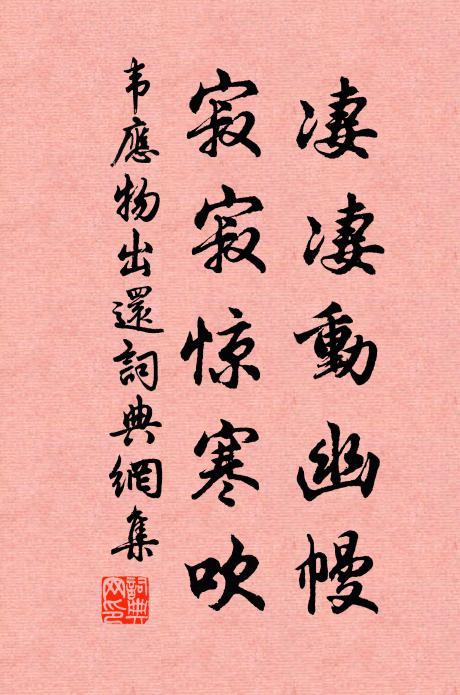 凄凄動幽幔
寂寂惊寒吹
韦應物出還詞典網集
詞典網印